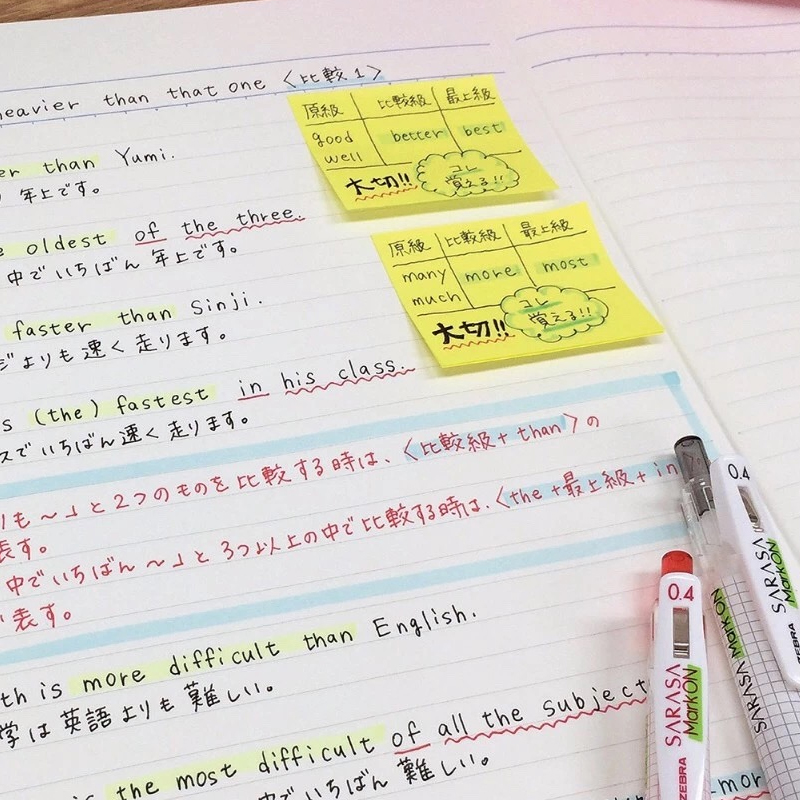 heavier than that one 〈比較1〉
er than Yumi.
年上です。
e oldest of the three.
中でいちばん年上です。
faster than Sinji.
ジよりも速く走ります。
s (the) fastest in his class.
スでいちばん速く走ります。
原級 比較級 最上級
good better best
well
大切!! コレ
覚える!!
原級 比較級 最上級
many more most
much
大切!! コレ
覚える!!
りも～」と2つのものを比較する時は、〈比較級+than〉の
表す。
中でいちばん～」と3つ以上の中で比較する時は、〈the+最上級+in
表す。
th is more difficult than English.
学は英語よりも難しい。
is the most difficult of all the subject
中でいちばん難しい。
mor
0.4
SARASA MarkON
ZEBRA
SARASA MarkON
0.4
SARASA MarkON
ZEBRA